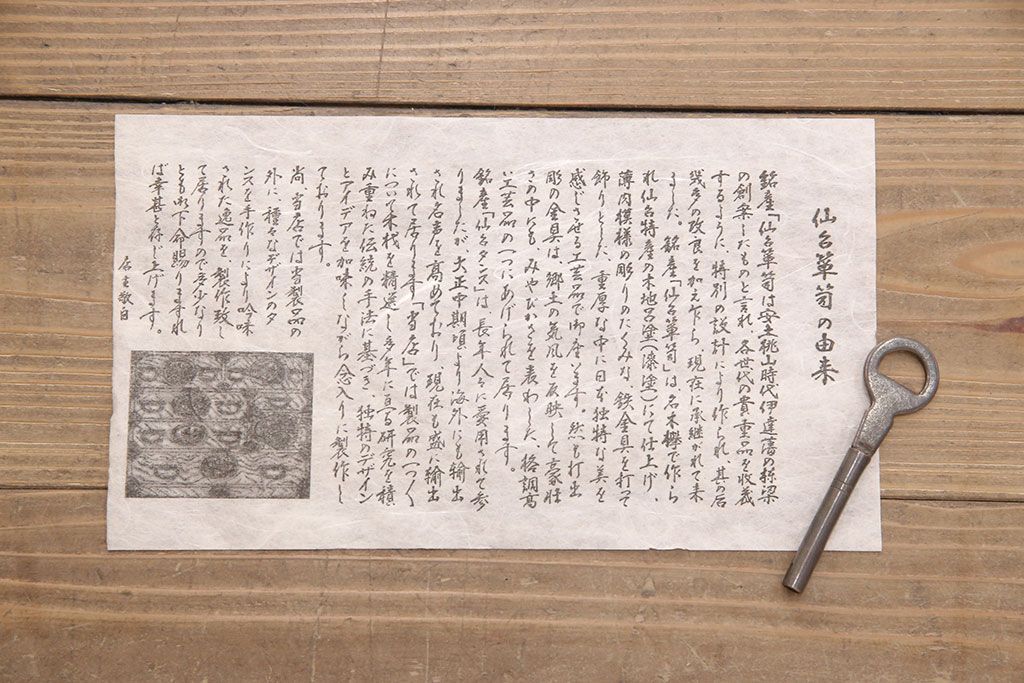 仙台箪笥の由来
銘産「仙台箪笥は安土桃山時代伊達藩の棟梁
の創案したものと言れ、各世代の貴重品を収蔵
するように、特別の設計により作られ、其の后
幾多の改良を加え乍ら、現在に承継がれて来
ました。銘産「仙台箪笥」は、名木欅で作ら
れ仙台特産の木地呂塗(漆塗)にて仕上げ、
薄肉模様の彫りのたくみな、鉄金具を打って
飾りとした、重厚な中に日本独特な美を
感じさせる工芸品で御座います。然も打出
彫の金具は、郷土の気風を反映して豪壮
さの中にも、みやびやかさを表わした、格調高
い工芸品の一つにあげられて居ります。
銘産「仙台タンス」は、長年人々に愛用されて参
りましたが、大正中期頃より海外にも輸出
され名声を高めており、現在も盛に輸出
されて居ります「当店」では製品の一つ一つ
について木材を精選し、多年に亘る研究を積
み重ねた伝統の手法に基づき、独特のデザイン
とアイデアを加味しながら念入りに製作し
ております。
尚、当店では当製品の
外に種々なデザインのタ
ンスを手作りにより吟味
された逸品を、製作致し
て居りますので多少なり
とも御下命賜りますれ
ば幸甚と存じ上げます。
店主敬白